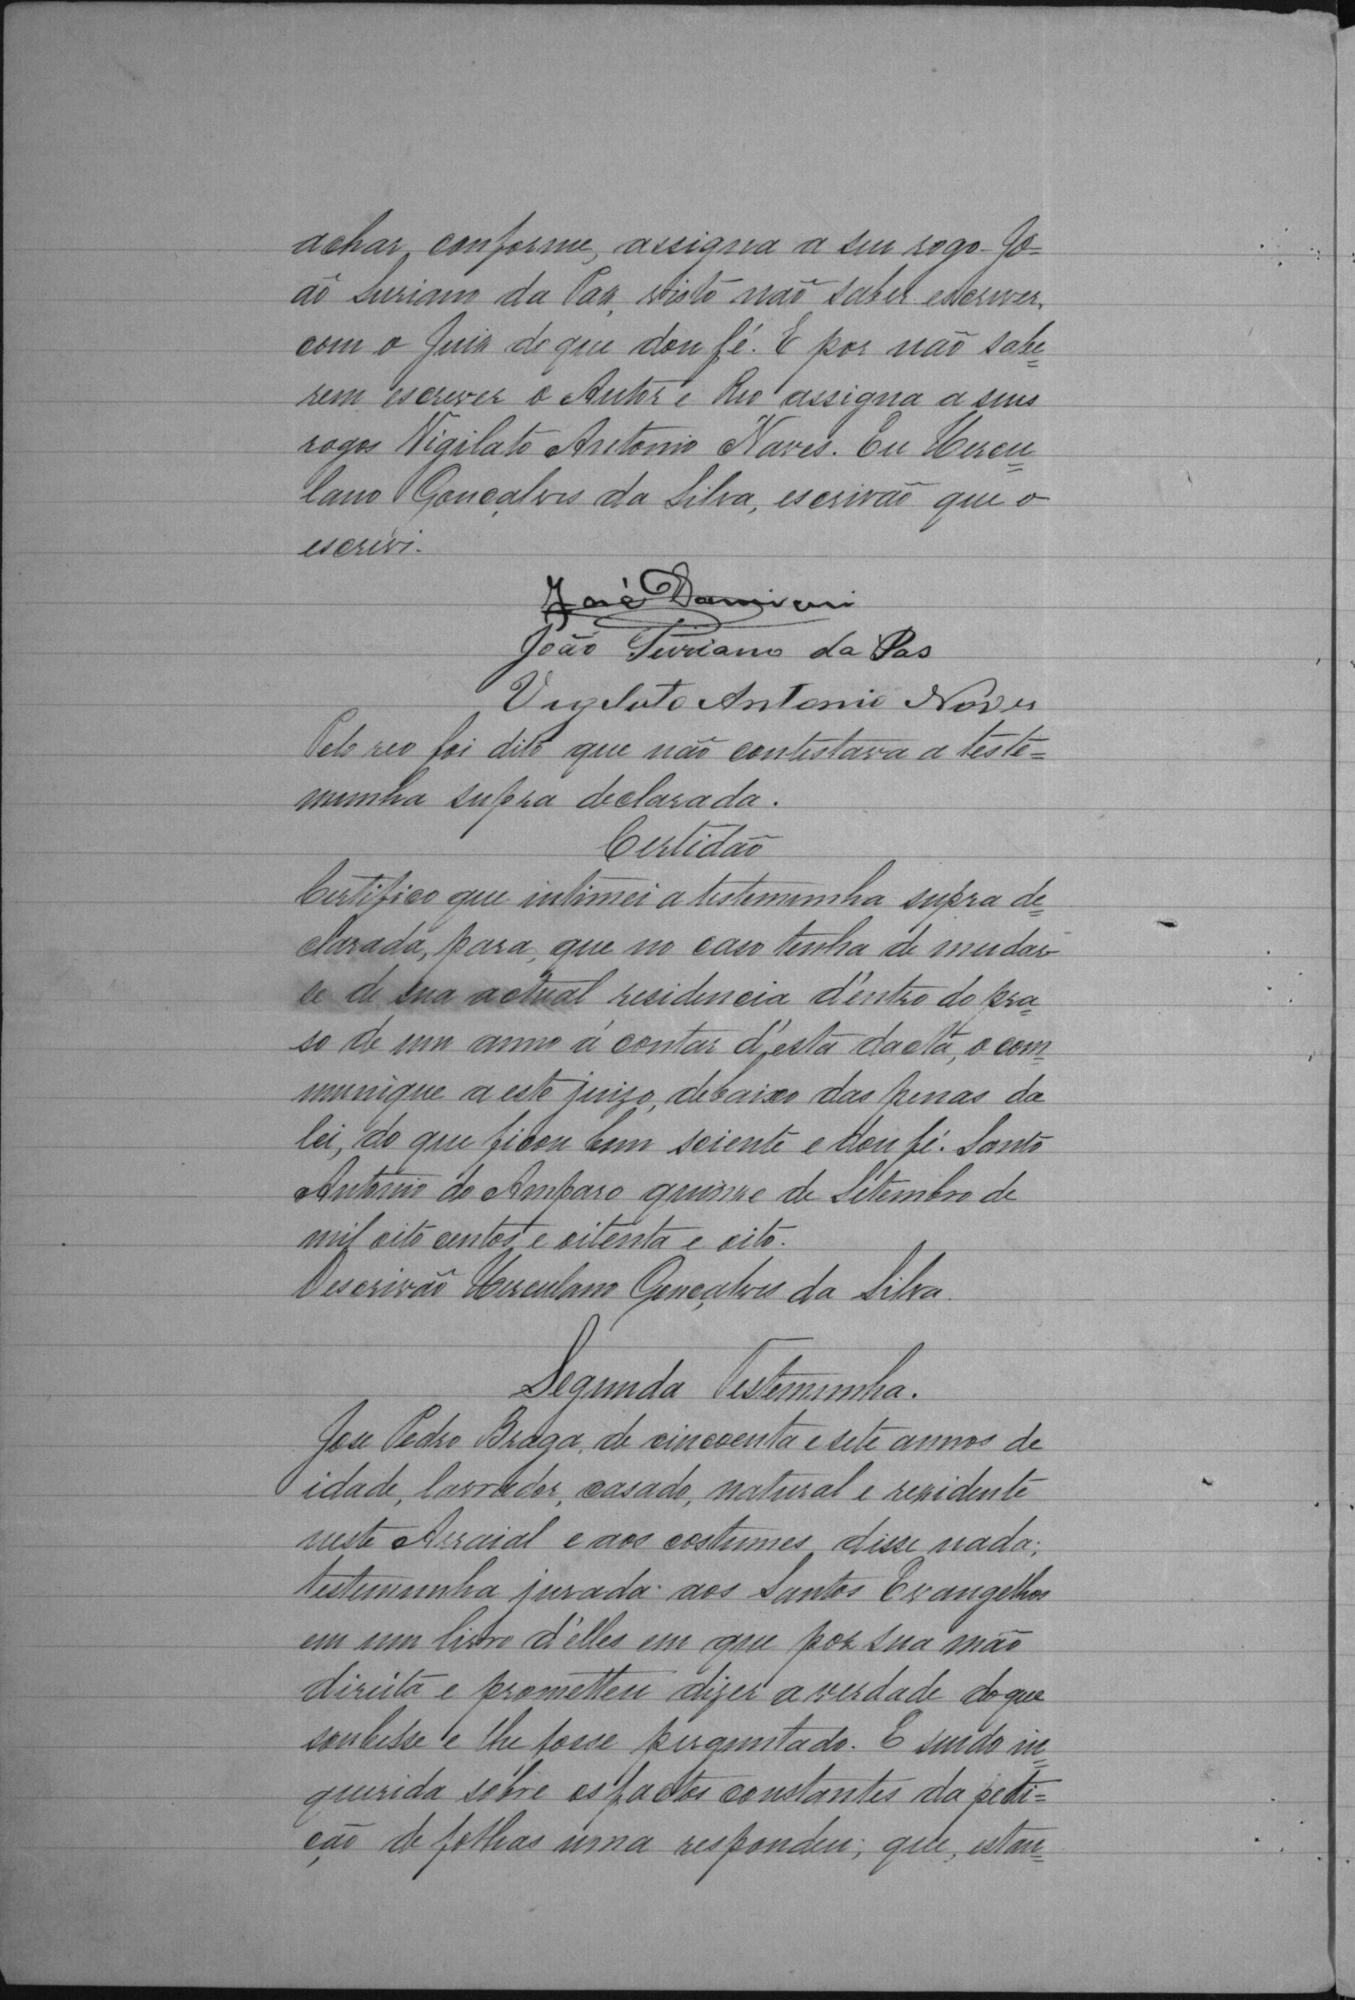 achar conforme, assigna a seu rogo Jo-
ão Suriano da Paz, visto não saber escrever,
com o Juiz de que dou fé. E por não sabe=
rem escrever o Autor e Reo assigna a seus
rogos Vigilato Antonio Naves. Eu Hercu=
lano Gonçalves da Silva, escrivão que o
escrevi.
José Damiani
João Suriano da Pas
Vigilato Antonio Naves
Pelo reo foi dito que não contestava a teste=
munha supra declarada.
Certidão
Certifico que intimei a testemunha supra de=
clarada, para, que no caso tenha de mudar
se de sua actual residencia d'entro do pra=
so de um anno á contar d'esta dacta, o com=
munique a este juizo, debaixo das penas da
lei, do que ficou bem sciente e dou fé. Santo
Antonio do Amparo quinze de Setembro de
mil oito centos e oitenta e oito.
O escrivão Herculano Gonçalves da Silva.
Segunda Testemunha.
José Pedro Braga, de cincoenta e sete annos de
idade, lavrador, casado, natural e rezidente
neste Arraial e aos costumes disse nada;
testemunha jurada aos Santos Evangelhos
em um livro d'elles em que poz sua mão
direita e prometteu dizer a verdade do que
soubesse e lhe fosse perguntado. E sendo in=
querida sobre os factos constantes da peti=
ção de folhas uma respondeu; que, estan=